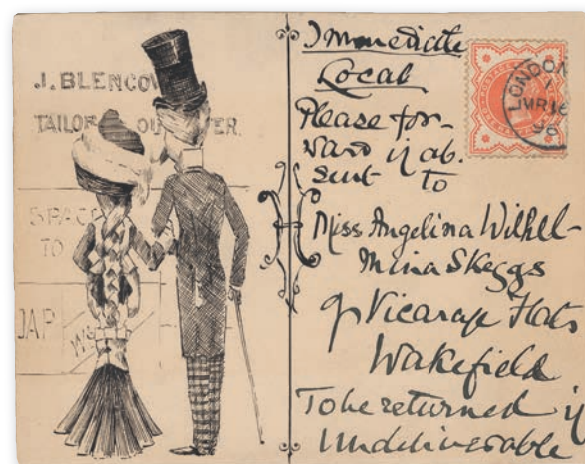 J. BLENCOW
TAILOR OU ER.
SPACE
TO
JAP
Immediate
Local
Please for-
ward if ab-
sent to
Miss Angelina Wilhel-
mina Skeggs
9 Vicarage Flats
Wakefield
To be returned if
Undeliverable
LONDON
98